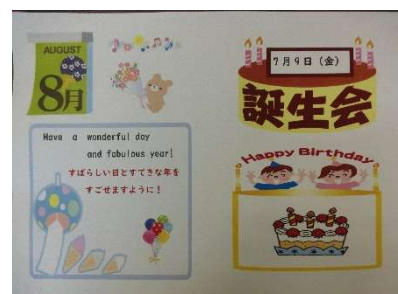 AUGUST
8月
Have a wonderful day
and fabulous year!
すばらしい日とすてきな年を
すごせますように！
7月9日（金）
誕生会
Happy Birthday